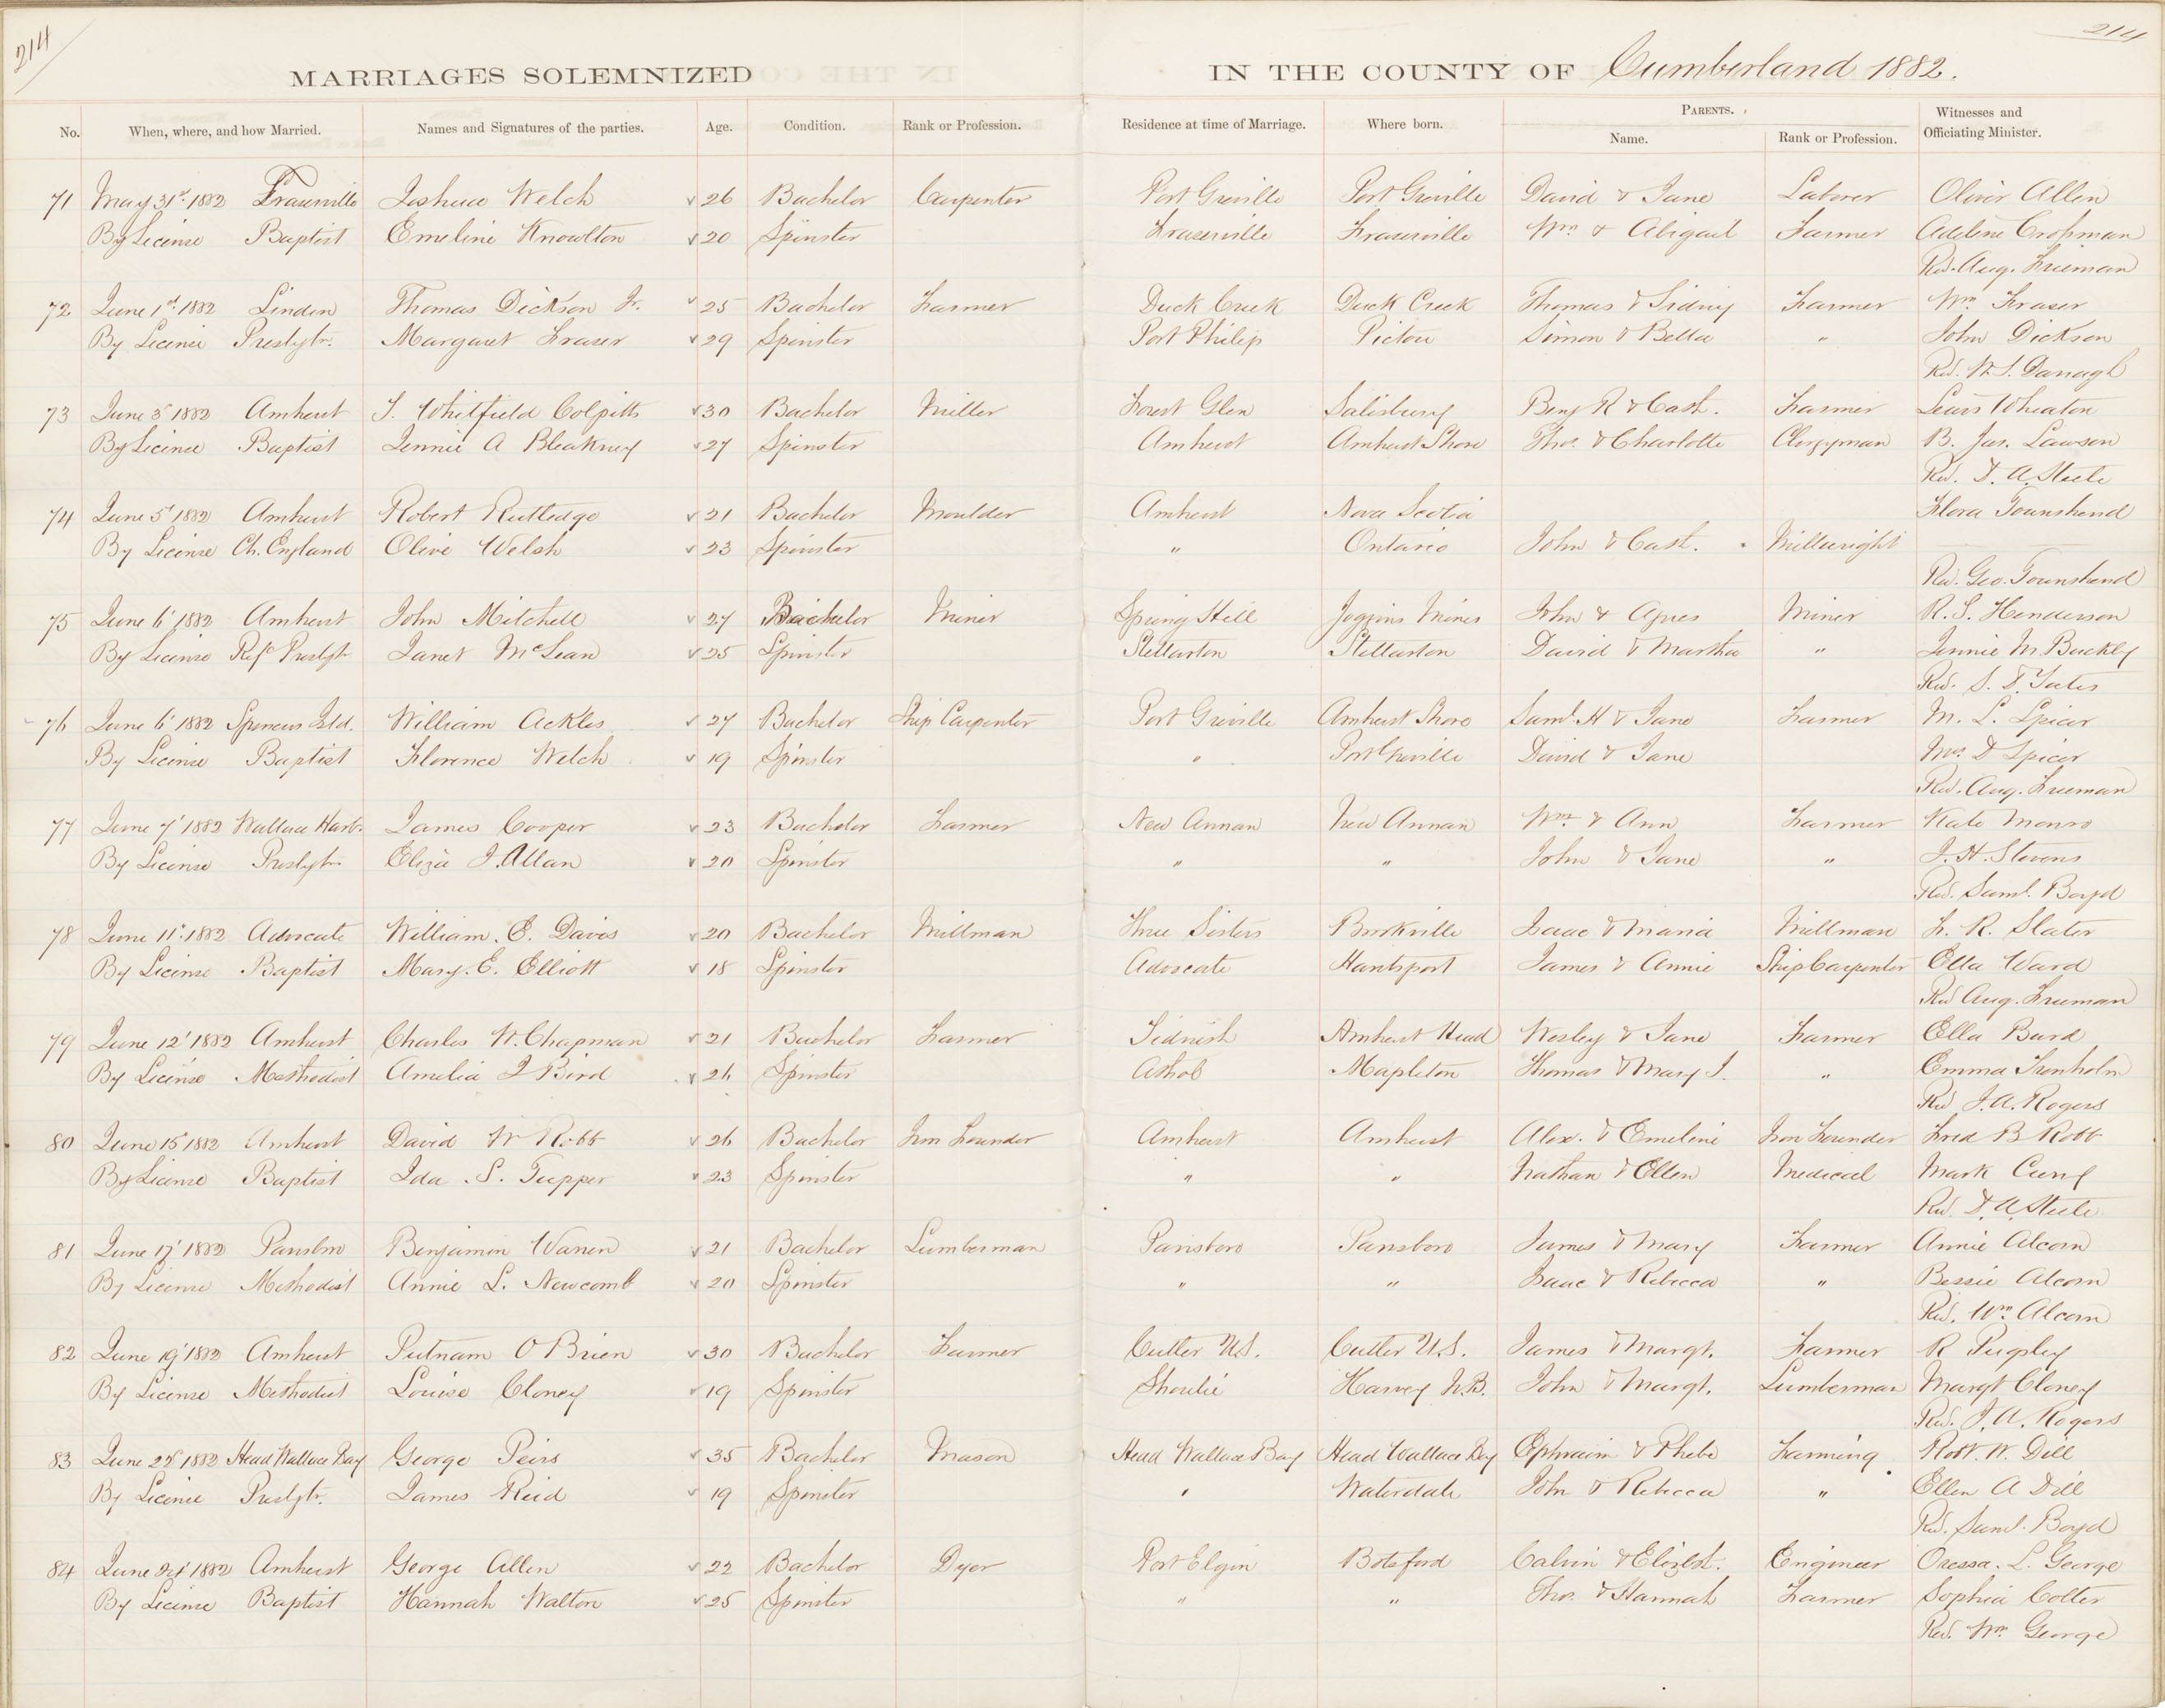 214
214
MARRIAGES SOLEMNIZED IN THE COUNTY OF Cumberland 1882.
No. When, where, and how Married. Names and Signatures of the parties. Age. Condition. Rank or Profession. Residence at time of Marriage. Where born. PARENTS. Name. Rank or Profession. Witnesses and Officiating Minister.
71 May 31st 1882 Fraserville Joshua Welch 26 Bachelor Carpenter Port Greville Port Greville David & Jane Laborer Oliver Allen
By License Baptist Emeline Knowlton 20 Spinster Fraserville Fraserville Wm & Abigail Farmer Adeline
Rev. Aug. Freeman
72 June 1st 1882 Linden Thomas Dickson Jr. 25 Bachelor Farmer Duck Creek Duck Creek Thomas & Sidney Farmer Wm Fraser
By License Presbytr. Margaret Fraser 29 Spinster Port Philip Pictou Simon & Bella " John Dickson
Rev. W. S. Darragh
73 June 3' 1882 Amherst T. Whitfield Colpitts 30 Bachelor Miller Forest Glen Salisbury Benj R & Cath. Farmer Lewis Wheaton
By License Baptist Jennie A Bleakney 27 Spinster Amherst Amherst Shore Thos. & Charlotte Clergyman B. Jas. Lawson
Rev. D. A. Steele
74 June 5' 1882 Amherst Robert Rutledge 21 Bachelor Moulder Amherst Nova Scotia Flora Townshend
By License Ch. England Olive Welsh 23 Spinster " Ontario John & Cath. Millwright
Rev. Geo. Townshend
75 June 6' 1882 Amherst John Mitchell 27 Bachelor Miner Spring Hill Joggins Mines John & Agnes Miner R. S. Henderson
By License Ref Presbytr Janet McLean 25 Spinster Stellarton Stellarton David & Martha " Jennie M. Buckley
Rev. S. D. Yates
76 June 6' 1882 Spencers Isld. William Ackles 27 Bachelor Ship Carpenter Port Greville Amherst Shore Saml. H & Jane Farmer M. L. Spicer
By License Baptist Florence Welch 19 Spinster " Port Greville David & Jane Mrs. D Spicer
Rev. Aug. Freeman
77 June 7' 1882 Wallace Harb. James Cooper 23 Bachelor Farmer New Annan New Annan Wm & Ann Farmer Kate Monro
By License Presbytr. Eliza J. Allan 20 Spinster " " John & Jane " J. H. Stevens
Rev. Saml. Boyd
78 June 11' 1882 Advocate William. E. Davis 20 Bachelor Millman Three Sisters Brookville Isaac & Maria Millman F. R. Slater
By License Baptist Mary. E. Elliott 18 Spinster Advocate Hantsport James & Annie Ship Carpenter Ella Ward
Rev Aug. Freeman
79 June 12' 1882 Amherst Charles W. Chapman 21 Bachelor Farmer Tidnish Amherst Head Wesley & Jane Farmer Ella Burd
By License Methodist Amelia J Bird 26 Spinster Athol Mapleton Thomas & Mary J. " Emma Trenholm
Rev J. A. Rogers
80 June 15' 1882 Amherst David W Robb 26 Bachelor Iron Founder Amherst Amherst Alex. & Emeline Iron Founder Fred B Robb
By License Baptist Ida. S. Tupper 23 Spinster " " Nathan & Ellen Medical Mark Curry
Rev. D. A. Steele
81 June 17' 1882 Parrsboro Benjamin Warren 21 Bachelor Lumberman Parrsboro Parrsboro James & Mary Farmer Annie Alcorn
By License Methodist Annie L. Newcomb 20 Spinster " " Isaac & Rebecca " Bessie Alcorn
Rev. Wm Alcorn
82 June 19' 1882 Amherst Putnam O'Brien 30 Bachelor Farmer Cutler U.S. Cutler U.S. James & Margt. Farmer R Pugsley
By License Methodist Louise Cloney 19 Spinster Shoulie Harvey N.B. John & Margt. Lumberman Margt Cloney
Rev. J. A. Rogers
83 June 22' 1882 Head Wallace Bay George Peirs 35 Bachelor Mason Head Wallace Bay Head Wallace Bay Ephraim & Phebe Farming Robt. W. Dill
By License Presbytr. James Reid 19 Spinster " Waterdale John & Rebecca " Ellen A Dill
Rev. Saml. Boyd
84 June 24' 1882 Amherst George Allen 22 Bachelor Dyer Port Elgin Botsford Calvin & Elizbt. Engineer Oressa. L. George
By License Baptist Hannah Walton 25 Spinster " " Thos. & Hannah Farmer Sophia Colter
Rev. Wm George